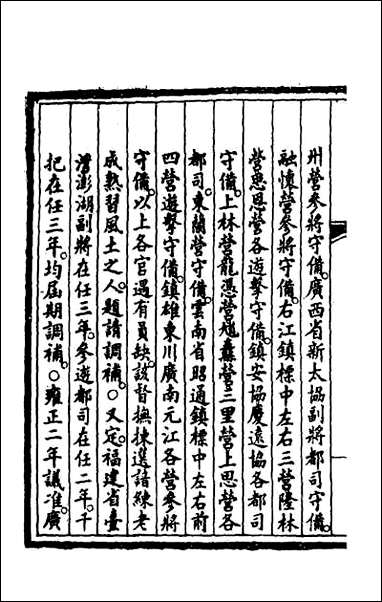 州營參將守備。廣西省新太協副將都司守備。
融懷營參將守備。右江鎮標中左右三營隆林
營思恩營各遊擊守備。鎮安協慶遠協各都司
守備。上林營龍憑營馗纛營三里營上思營各
都司。東蘭營守備。雲南省昭通鎮標中左右前
四營遊擊守備。鎮雄東川廣南元江各營參將
守備。以上各官遇有員缺。該督撫揀選諳練老
成熟習風土之人。題請調補。○又定。福建省臺
灣澎湖副將在任三年。參遊都司在任二年。千
把在任三年。均屆期調補。○雍正二年議准。廣